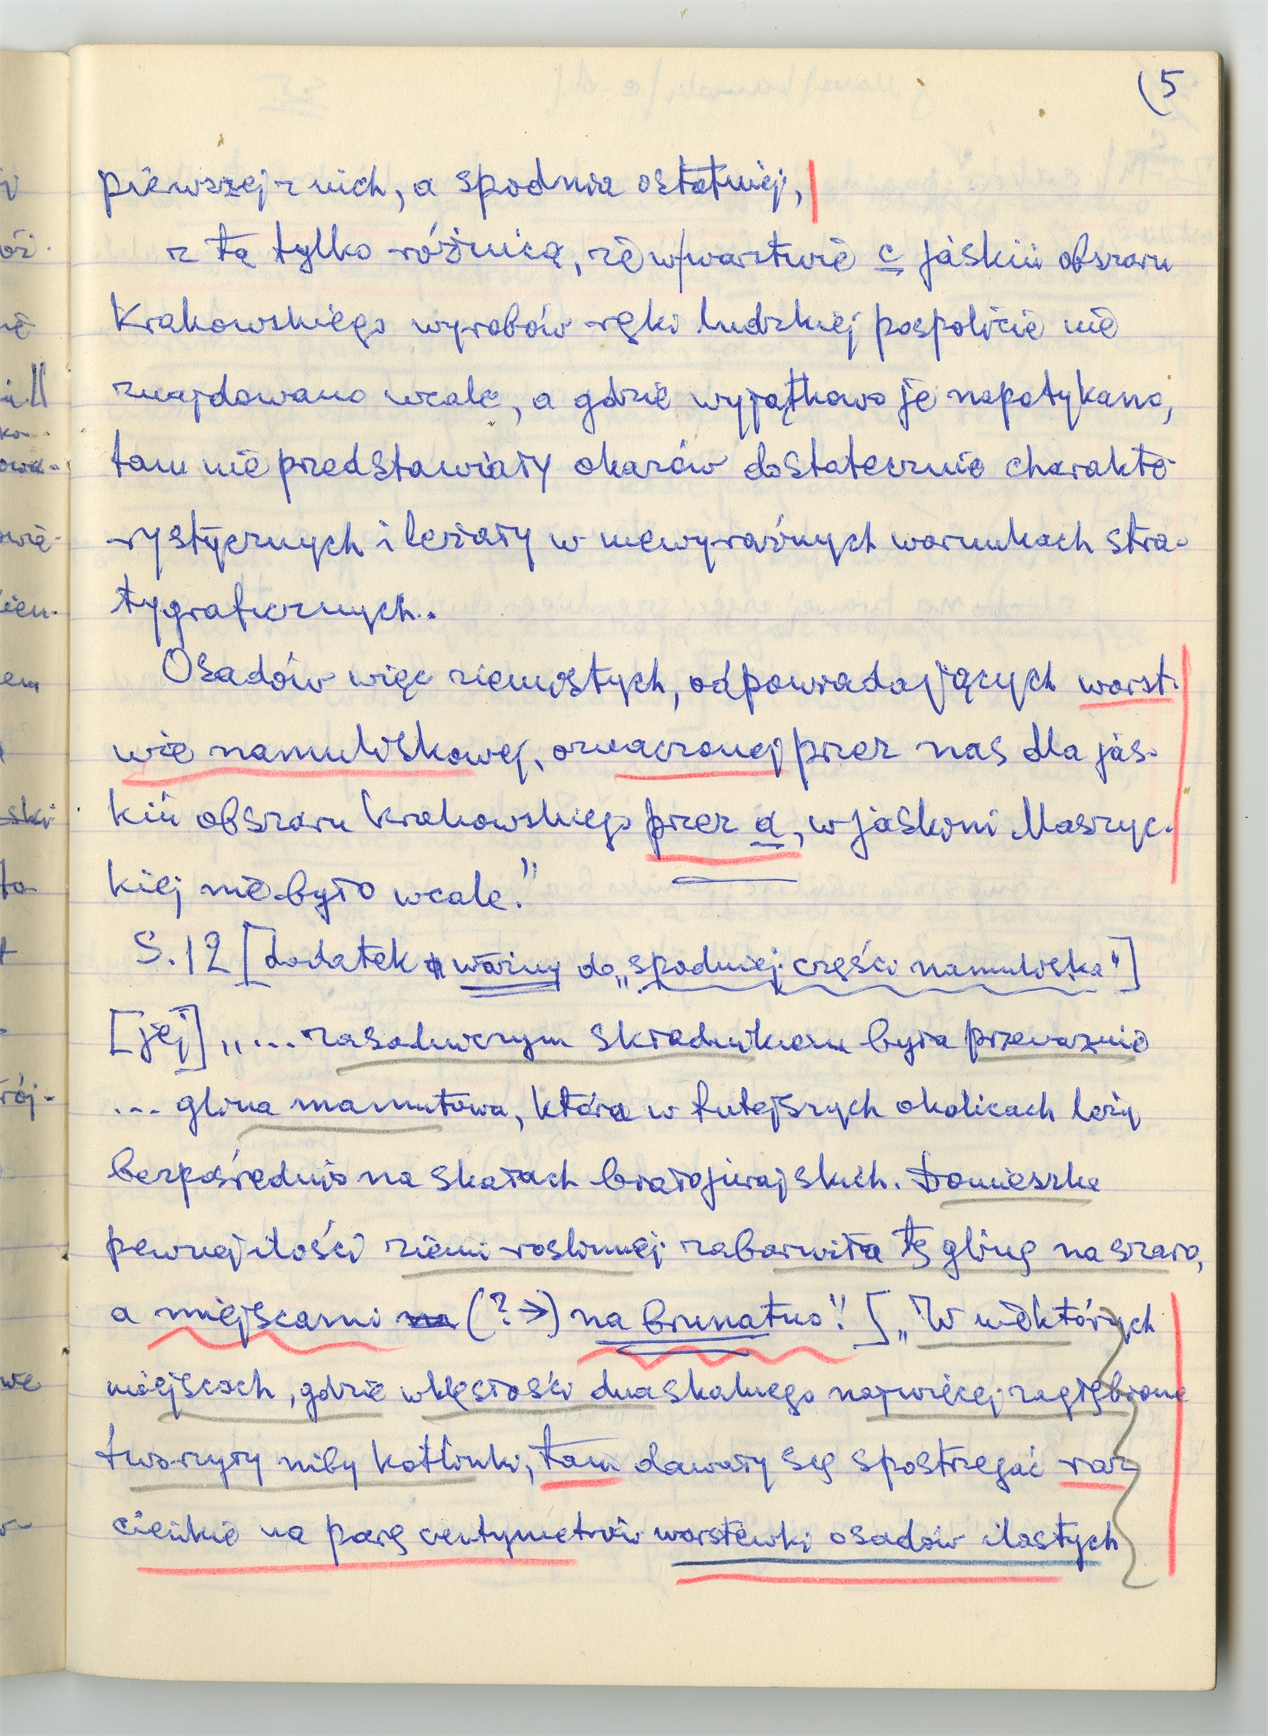 (5
pierwszej z nich, a spodnia ostatniej,
z tą tylko różnicą, że w warstwie c jaskiń obszaru
Krakowskiego wyrobów ręki ludzkiej pospolicie nie
znajdowano wcale, a gdzie wyjątkowo je napotykano,
tam nie przedstawiały okazów dostatecznie charakte-
rystycznych i leżały w niewyraźnych warunkach stra-
tygraficznych.
Osadów więc ziemistych, odpowiadających warst-
wie namuliskowej, oznaczonej przez nas dla jas-
kiń obszaru Krakowskiego przez a, w jaskini Maszyc-
kiej nie było wcale."
S. 12 [dodatek ważny do „spodniej części namuliska"]
[jej] „... zasadniczym składnikiem była przeważnie
... glina mamutowa, która w tutejszych okolicach leży
bezpośrednio na skałach białojurajskich. Domieszka
pewnej ilości ziemi roślinnej zabarwiła tę glinę na szaro,
a miejscami na (? →) na brunatno"! ] „W niektórych
miejscach, gdzie wklęsłości dna skalnego najwięcej zagłębione
tworzyły niby kotlinki, tam dawały się spostrzegać raz
cienkie na parę centymetrów warstewki osadów ilastych